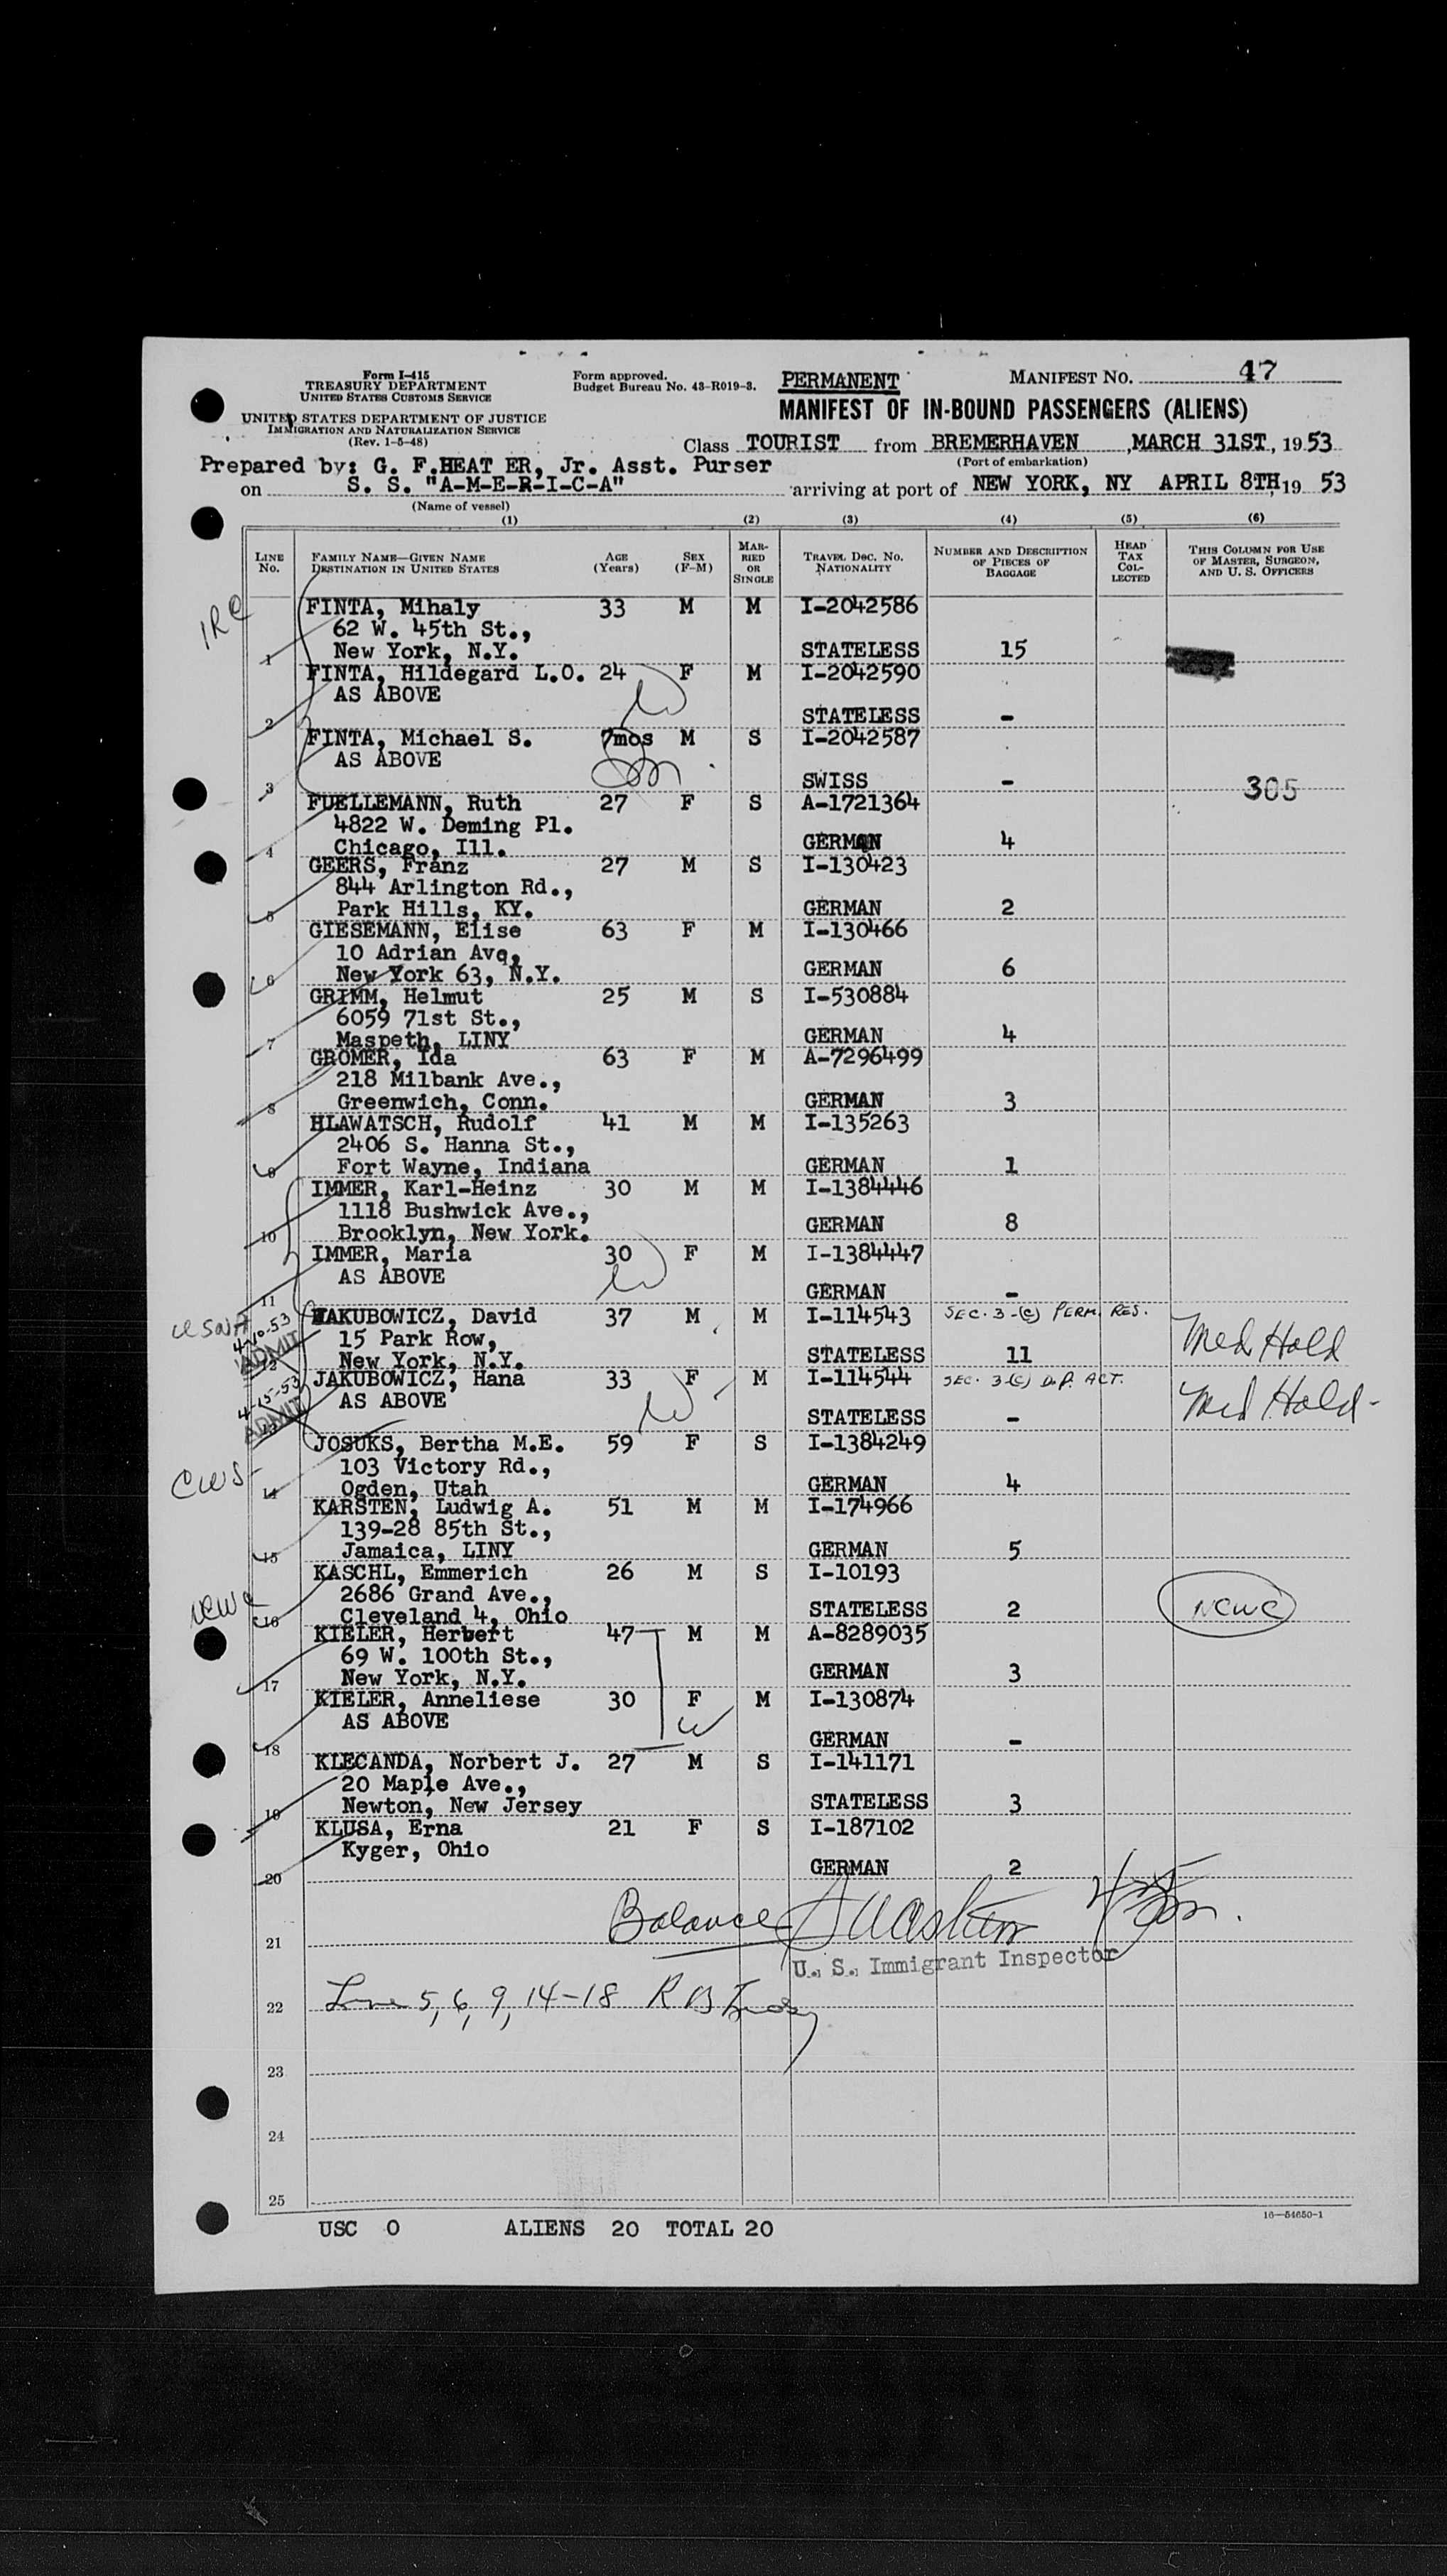 Form I-415
TREASURY DEPARTMENT
UNITED STATES CUSTOMS SERVICE
UNITED STATES DEPARTMENT OF JUSTICE
IMMIGRATION AND NATURALIZATION SERVICE
(Rev. 1-5-48)
Form approved.
Budget Bureau No. 43-R019-3.
PERMANENT
MANIFEST NO. 47
MANIFEST OF IN-BOUND PASSENGERS (ALIENS)
Class TOURIST from BREMERHAVEN, MARCH 31ST, 1953
(Port of embarkation)
Prepared by: G. F.HEAT ER, Jr. Asst. Purser
on S. S. "A-M-E-R-I-C-A" arriving at port of NEW YORK, NY APRIL 8TH, 19 53
(Name of vessel)
(1) (2) (3) (4) (5) (6)
LINE NO. FAMILY NAME—GIVEN NAME DESTINATION IN UNITED STATES AGE (Years) SEX (F-M) MARRIED OR SINGLE TRAVEL DOC. NO. NATIONALITY NUMBER AND DESCRIPTION OF PIECES OF BAGGAGE HEAD TAX COLLECTED THIS COLUMN FOR USE OF MASTER, SURGEON, AND U. S. OFFICERS
IRC
FINTA, Mihaly 33 M M I-2042586
62 W. 45th St.,
1 New York, N.Y. STATELESS 15
FINTA, Hildegard L.O. 24 F M I-2042590
AS ABOVE
2 STATELESS -
FINTA, Michael S. 7mos M S I-2042587
AS ABOVE
3 SWISS - 305
FUELLEMANN, Ruth 27 F S A-1721364
4822 W. Deming Pl.
4 Chicago, Ill. GERMAN 4
GEERS, Franz 27 M S I-130423
844 Arlington Rd.,
5 Park Hills, KY. GERMAN 2
GIESEMANN, Elise 63 F M I-130466
10 Adrian Ave,
6 New York 63, N.Y. GERMAN 6
GRIMM, Helmut 25 M S I-530884
6059 71st St.,
7 Maspeth, LINY GERMAN 4
GROMER, Ida 63 F M A-7296499
218 Milbank Ave.,
8 Greenwich, Conn. GERMAN 3
HLAWATSCH, Rudolf 41 M M I-135263
2406 S. Hanna St.,
9 Fort Wayne, Indiana GERMAN 1
IMMER, Karl-Heinz 30 M M I-1384446
1118 Bushwick Ave.,
10 Brooklyn, New York. GERMAN 8
IMMER, Maria 30 F M I-1384447
AS ABOVE
11 GERMAN -
JAKUBOWICZ, David 37 M M I-114543 SEC. 3-(c) PERM. RES.
4-10-53 15 Park Row, Med Hold
ADMIT 12 New York, N.Y. STATELESS 11
JAKUBOWICZ, Hana 33 F M I-114544 SEC. 3-(c) D.P. ACT.
4-15-53 AS ABOVE Med Hold-
ADMIT 13 STATELESS -
JOSUKS, Bertha M.E. 59 F S I-1384249
CWS- 103 Victory Rd.,
14 Ogden, Utah GERMAN 4
KARSTEN, Ludwig A. 51 M M I-174966
139-28 85th St.,
15 Jamaica, LINY GERMAN 5
KASCHL, Emmerich 26 M S I-10193
NCWC 2686 Grand Ave.,
16 Cleveland 4, Ohio STATELESS 2 NCWC
KIELER, Herbert 47 M M A-8289035
69 W. 100th St.,
17 New York, N.Y. GERMAN 3
KIELER, Anneliese 30 F M I-130874
AS ABOVE W
18 GERMAN -
KLECANDA, Norbert J. 27 M S I-141171
20 Maple Ave.,
19 Newton, New Jersey STATELESS 3
KLUSA, Erna 21 F S I-187102
Kyger, Ohio
20 GERMAN 2
Balance
21
U. S. Immigrant Inspector
22 5, 6, 9, 14-18
23
24
25
USC 0 ALIENS 20 TOTAL 20
16—54650-1